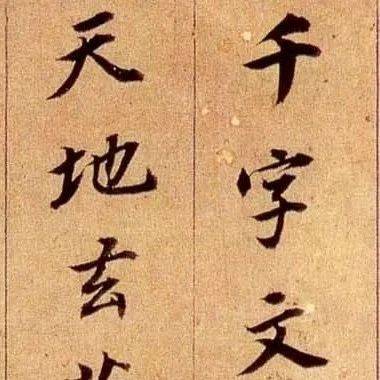 千字文
天地玄